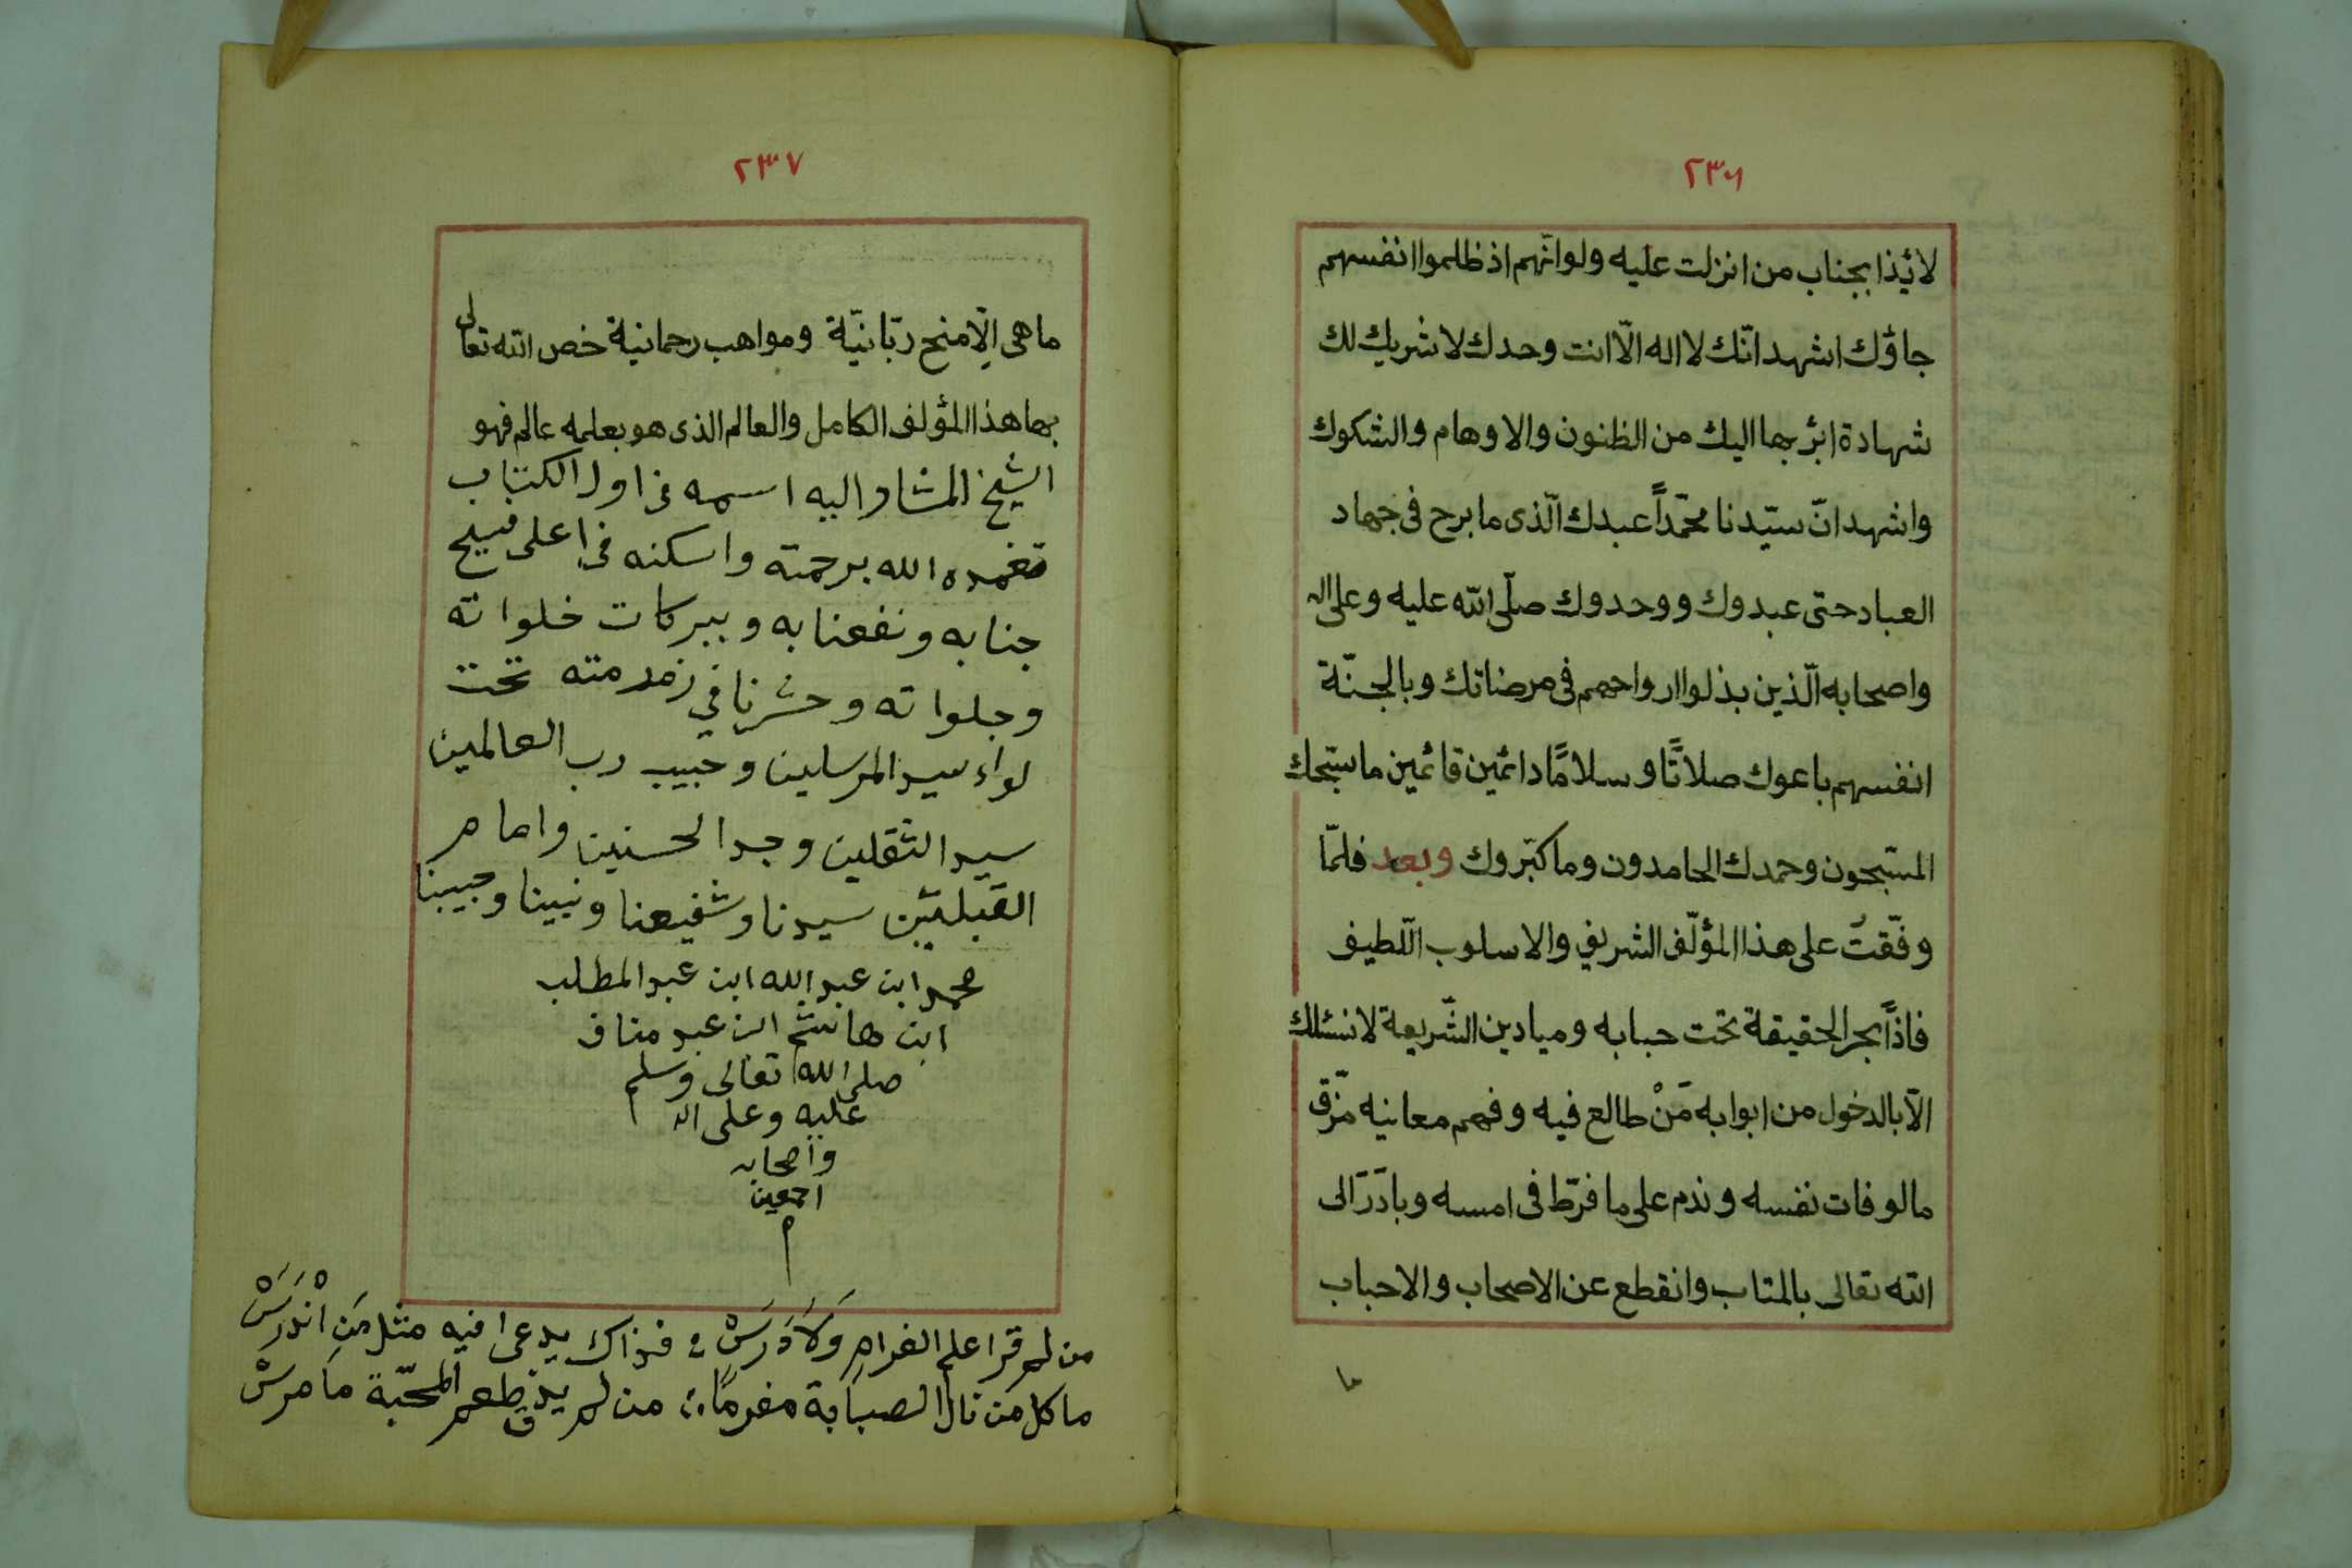 ٢٣٦
لائذا بجناب من انزلت عليه ولو انّهم اذ ظلموا انفسهم
جاؤك اشهد انّك لا اله الّا انت وحدك لا شريك لك
شهادة ابرُّ بها اليك من الظنون والاوهام والشكوك
واشهد انّ سيّدنا محمّداً عبدك الّذى ما برح فى جهاد
العباد حتى عبدوك ووحدوك صلّى الله عليه وعلى اله
واصحابه الّذين بذلوا ارواحهم فى مرضاتك وبالجنّة
انفسهم باعوك صلاتًا وسلامًا دائمين قائمين ما سبّحك
المسبّحون وحمدك الحامدون وما كبّروك وبعد فلمّا
وفّقتُ على هذا المؤلّف الشريف والاسلوب اللّطيف
فاذاً بحر الحقيقة تحت حبابه وميادين الشّريعة لا نسئلك
الّا بالدخول من ابوابه مَنْ طالع فيه وفهم معانيه مزّق
مالوفات نفسه وندم على ما فرّط فى امسه وبادَرَ الى
الله تعالى بالمتاب وانقطع عن الاصحاب والاحباب
ما
٢٣٧
ما هى الّا منح ربّانيّة ومواهب رحمانية خص الله تعالى
بها هذا المؤلف الكامل والعالم الذى هو بعلمه عالم فهو
الشيخ المشار اليه اسمه فى اول الكتاب
تغمده الله برحمته واسكنه فى اعلى فسيح
جنابه ونفعنا به وببركات خلواته
وجلواته وحشرنا في زمرمته تحت
لواء سيد المرسلين وحبيب رب العالمين
سيد الثقلين وجد الحسنين وامام
القبلتين سيدنا وشفيعنا ونبينا وحبيبنا
محمد ابن عبد الله ابن عبد المطلب
ابن هاشم ابن عبد مناف
صلى الله تعالى وسلم
عليه وعلى اله
واصحابه
اجمعين
م
من لم قرا علم الغرام وَلَا دَرَسْ ؛ فذاك يدعى فيه مثل مَنِ انْدَرَسْ
ما كل من نال الصبابة مغرمًا ؛ من لم يذق طعم المحبّة ما مرسْ